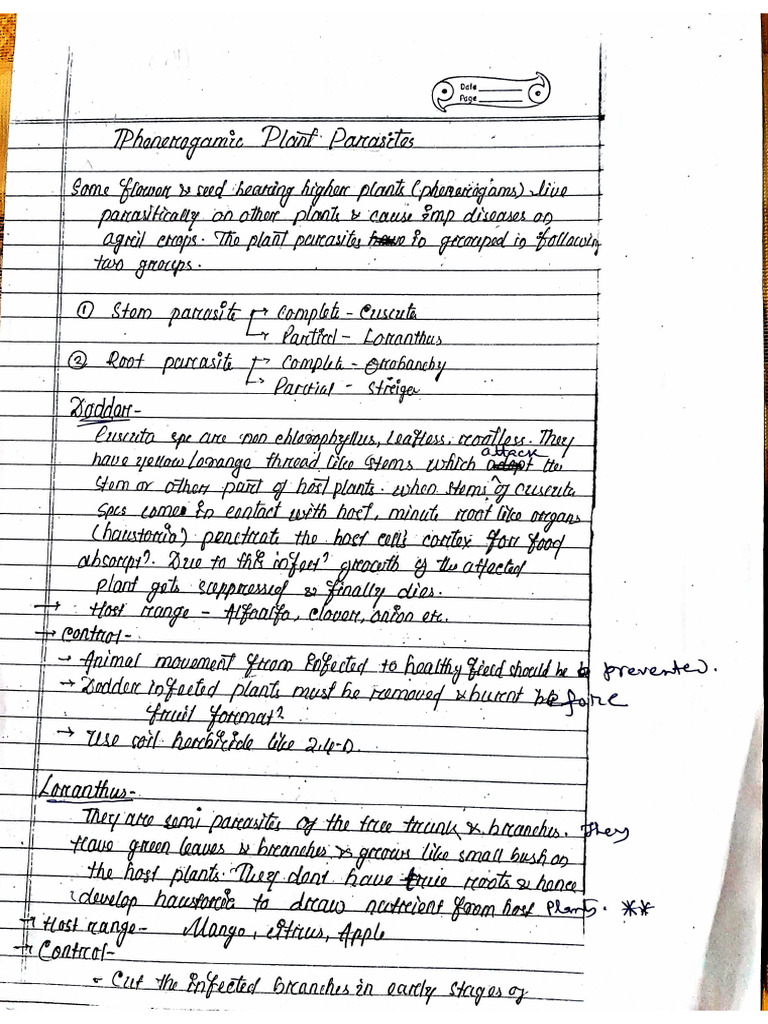 Date
Page
Phonerogamic Plant Parasites
Some flower & seed bearing higher plants (phenerogams) live
parasitically on other plants & cause imp diseases on
agril crops. The plant parasites is grouped in following
two groups.
① Stem parasite → Complete - Cuscuta
→ Partial - Loranthus
② Root parasite → Complete - Orobanchy
→ Partial - Streiga
Dodder-
Cuscuta spc are non chlorophyllus, leafless, rootless. They
have yellow/orange thread like stems which attack the
stem or other part of host plants. when stems of cuscuta
spcs come in contact with host, minute root like organs
(haustoria) penetrate the host cells cortex for food
absorpt?. Due to this infect? growth of the affected
plant gets suppressed & finally dies.
→ Host range - Alfaalfa, clover, onion etc.
→ control-
→ Animal movement from infected to healthy field should be prevented.
→ Dodder infected plants must be removed & burnt before
fruit format?
→ Use soil herbicide like 2,4-D.
Loranthus-
They are semi parasites of the tree trunk & branches. They
have green leaves & branches & grows like small bush on
the host plants. They dont have true roots & hence
develop haustoria to draw nutrient from host plants. **
→ Host range- Mango, citrus, Apple
→ Control-
- Cut the infected branches in early stages of